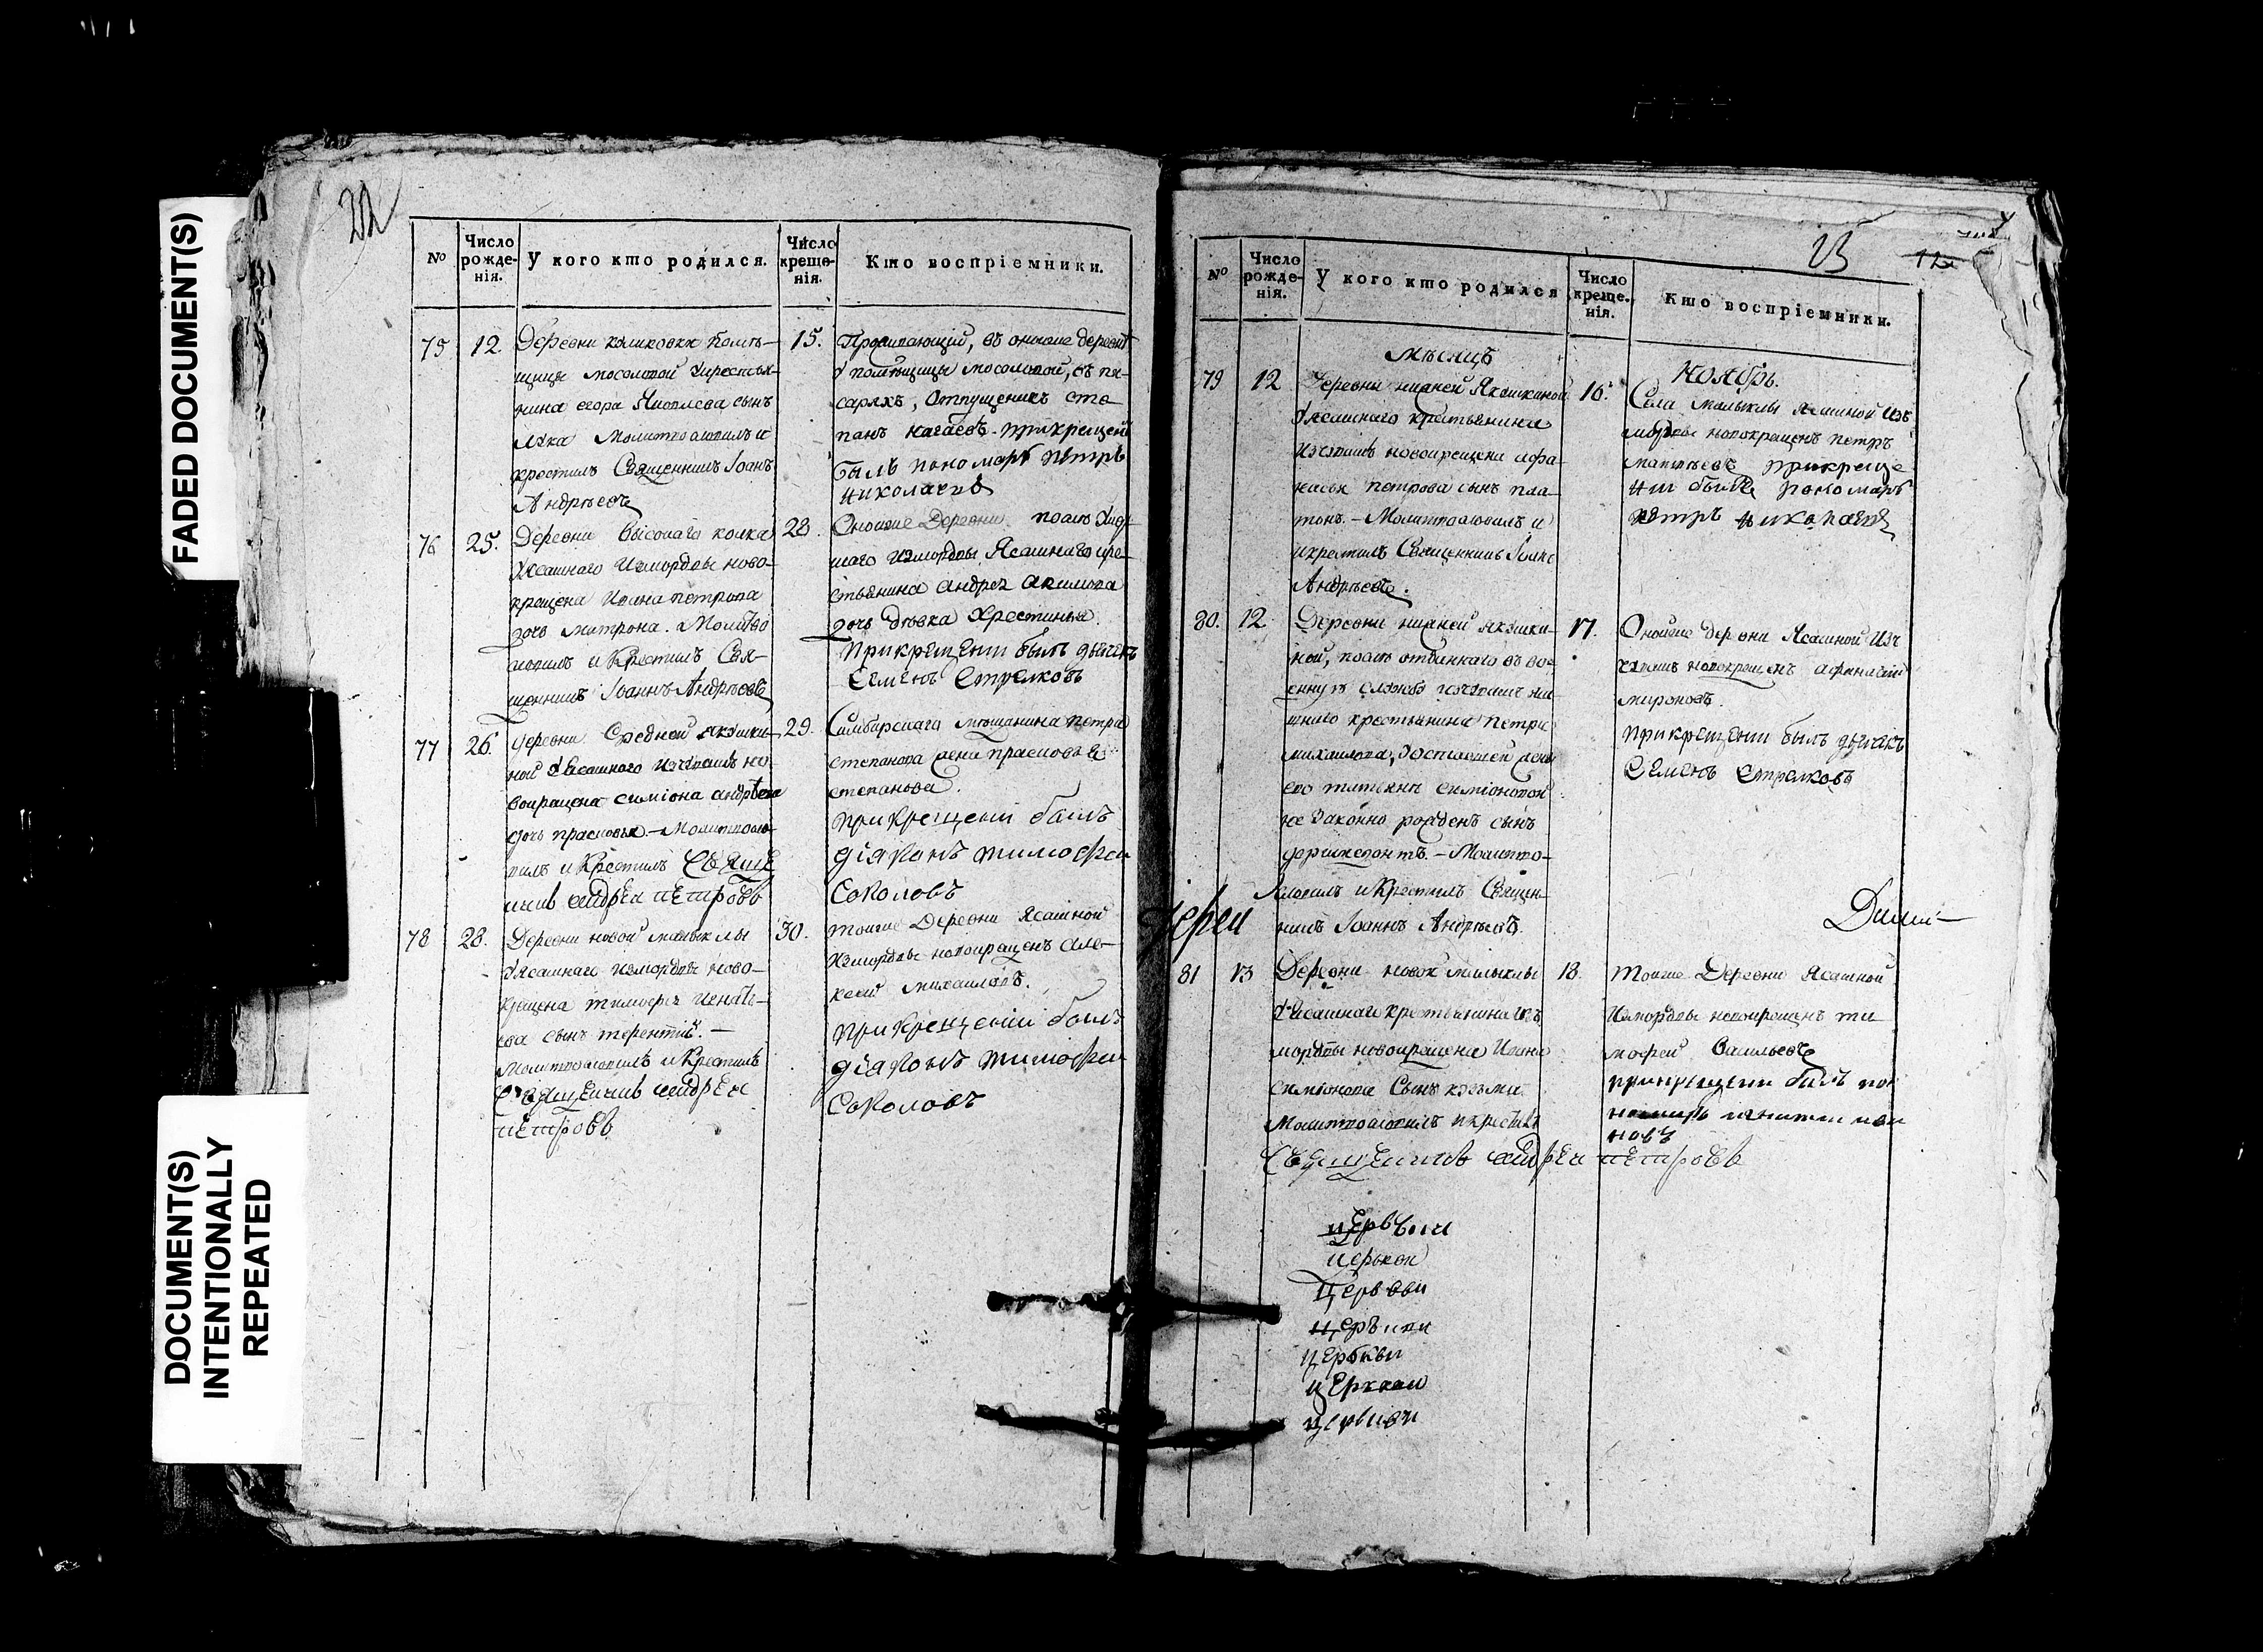 FADED DOCUMENT(S)
DOCUMENT(S)
INTENTIONALLY
REPEATED
22
№
Число рожде-нія.
У кого кто родился.
Число креще-нія.
Кто воспріемники.
75
12
Деревни
помѣ-
щицы мосоловой Хрестья-
нина егора Яковлева сынъ
лука Молитвословилъ и
крестилъ Священникъ Іоанъ
Андрѣевъ
15.
въ оноиже деревнѣ
У помѣщицы мосоловой, въ пи-
саряхъ, Отпущеникъ сте-
панъ нагаевъ. прикрещенї
былъ пономарь петръ
николаевъ
76
25.
Деревни высокаго колка
Уясашнаго Измордвы ново-
крещена Ивана петрова
дочь матрона. Молитво
словилъ и Крестилъ Свя-
щенникъ Іоаннъ Андрѣевъ
28.
Оноиже Деревни
шаго Измордвы Ясашнаго кре-
стьянина андрея акимова
дочь дѣвка Хрестинья.
Прикрещении былъ дьячекъ
Семенъ Стрелковъ
77
26.
деревни Средней якушки-
ной Уясашнаго изчувашъ но
вокрещена симіона андрѣева
дочь прасковья. - Молитвосло-
вилъ и Крестилъ Свяще
никъ андреи петровъ
29.
Симбирскаго мѣщанина петра
степанова жена прасковья
степанова.
прикрещении былъ
діяконъ тимофеи
Соколовъ
78
28.
Деревни новой малыклы
Уясашнаго измордвы ново-
крещена тимофея игнатье-
ва сынъ терентій. -
Молитвословилъ и Крестилъ
Священикъ андреи
петровъ
30.
тоиже Деревни Ясашной
Измордвы новокрещенъ але-
ксеи михаиловъ.
прикрещении былъ
діяконъ тимофеи
Соколовъ
23
№
Число рожде-нія.
У кого кто родился
Число креще-нія.
Кто воспріемники.
Мѣсяцъ
Ноябрь.
79
12
Деревни нижней Якушкиной
Уясашнаго крестьянина
изчувашъ новокрещена афа-
насья петрова сынъ пла-
тонъ. - Молитвословилъ и
крестилъ Священникъ Іоанъ
Андрѣевъ.
16.
Села малыклы ясашной изъ
мордвы новокрещенъ петръ
матвѣевъ прикреще
нии былъ пономарь
петръ николаевъ
80.
12
Деревни нижней якушки-
ной, послѣ отданнаго въ во-
енную службу изчувашъ яса
шнаго крестьянина петра
михаилова, Уоставшей жены
его татьяны симіоновой
не законно рожденъ сынъ
ферапонтъ. - Молитво-
словилъ и Крестилъ Священ-
никъ Іоаннъ Андрѣевъ.
17.
Оноиже деревни Ясашной Изч
увашъ новокрещенъ афанасій
мироновъ.
Прикрещении былъ дьячекъ
Семенъ Стрелковъ
Іереи
Дими-
81
13
Деревни новой малыклы
Уясашнаго крестьянина изъ
мордвы новокрещена Ивана
симіонова Сынъ козьма.
Молитвословилъ и крестилъ
Священикъ андреи петровъ
18.
тоиже Деревни Ясашной
Измордвы новокрещенъ ти
мофеи Васильевъ
прикрещении былъ по
номарь
новъ
церькви
церькви
церькви
церькви
церькви
церкви
церькви